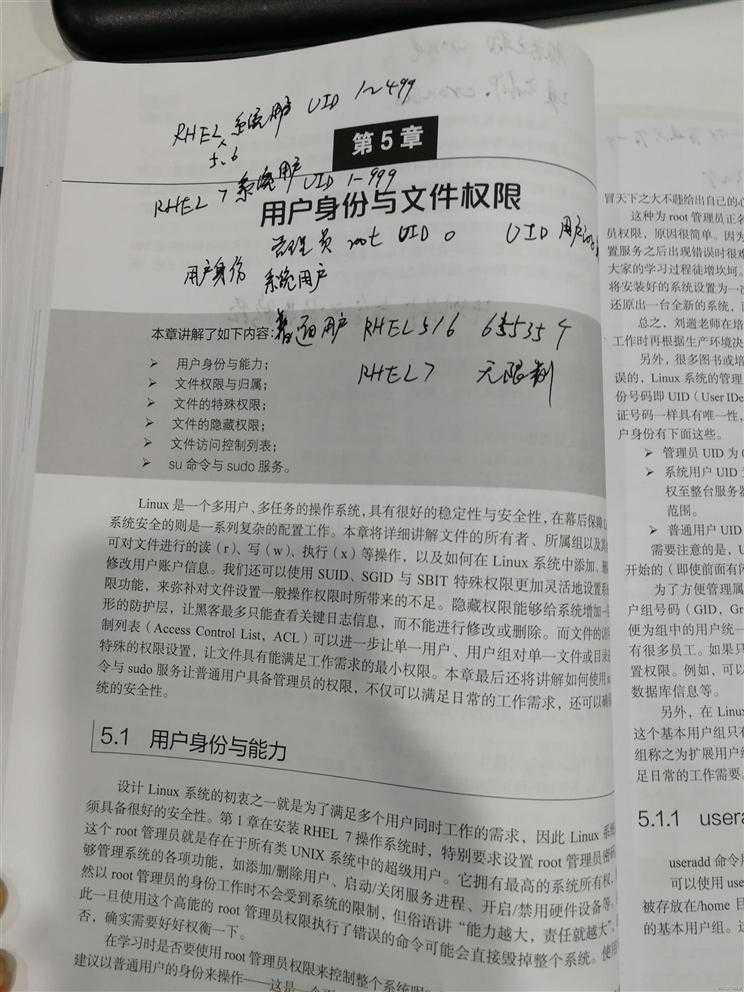 RHEL 系统用户 UID 1~499
5、6
第5章
RHEL 7 系统用户 UID 1-999
用户身份与文件权限
管理员 root UID 0 UID 用户
用户身份 系统用户
本章讲解了如下内容:
普通用户 RHEL5/6 65535个
➢ 用户身份与能力;
RHEL7 无限制
➢ 文件权限与归属;
➢ 文件的特殊权限;
➢ 文件的隐藏权限;
➢ 文件访问控制列表;
➢ su 命令与 sudo 服务。
Linux 是一个多用户、多任务的操作系统,具有很好的稳定性与安全性,在幕后保障
系统安全的则是一系列复杂的配置工作。本章将详细讲解文件的所有者、所属组以及其
可对文件进行的读(r)、写(w)、执行(x)等操作,以及如何在 Linux 系统中添加、删
修改用户账户信息。我们还可以使用 SUID、SGID 与 SBIT 特殊权限更加灵活地设置系
限功能,来弥补对文件设置一般操作权限时所带来的不足。隐藏权限能够给系统增加一
形的防护层,让黑客最多只能查看关键日志信息,而不能进行修改或删除。而文件的访
制列表(Access Control List,ACL)可以进一步让单一用户、用户组对单一文件或目录进
特殊的权限设置,让文件具有能满足工作需求的最小权限。本章最后还将讲解如何使用su
令与 sudo 服务让普通用户具备管理员的权限,不仅可以满足日常的工作需求,还可以确
统的安全性。
5.1 用户身份与能力
设计 Linux 系统的初衷之一就是为了满足多个用户同时工作的需求,因此 Linux 系
须具备很好的安全性。第 1 章在安装 RHEL 7 操作系统时,特别要求设置 root 管理员密码
这个 root 管理员就是存在于所有类 UNIX 系统中的超级用户。它拥有最高的系统所有权,
够管理系统的各项功能,如添加/删除用户、启动/关闭服务进程、开启/禁用硬件设备等。
然以 root 管理员的身份工作时不会受到系统的限制,但俗语讲“能力越大,责任就越大”,
此一旦使用这个高能的 root 管理员权限执行了错误的命令可能会直接毁掉整个系统。使用
否,确实需要好好权衡一下。
在学习时是否要使用 root 管理员权限来控制整个系统呢
建议以普通用户的身份来操作——这是一个
冒天下之大不韪给出自己的心
这种为 root 管理员正名
员权限,原因很简单。因为
置服务之后出现错误时很难
大家的学习过程徒增坎坷。
将安装好的系统设置为一
还原出一台全新的系统,
总之,刘遄老师在培
工作时再根据生产环境决
另外,很多图书或培
误的,Linux 系统的管理
份号码即 UID(User IDe
证号码一样具有唯一性,
户身份有下面这些。
➢ 管理员 UID 为 0
➢ 系统用户 UID 为
权至整台服务器
范围。
➢ 普通用户 UID
需要注意的是,U
开始的(即使前面有闲
为了方便管理属
户组号码(GID,Gr
便为组中的用户统一
有很多员工。如果只
置权限。例如,可以
数据库信息等。
另外,在 Linux
这个基本用户组只有
组称之为扩展用户组
足日常的工作需要。
5.1.1 usera
useradd 命令用
可以使用 use
被存放在/home 目
的基本用户组。这